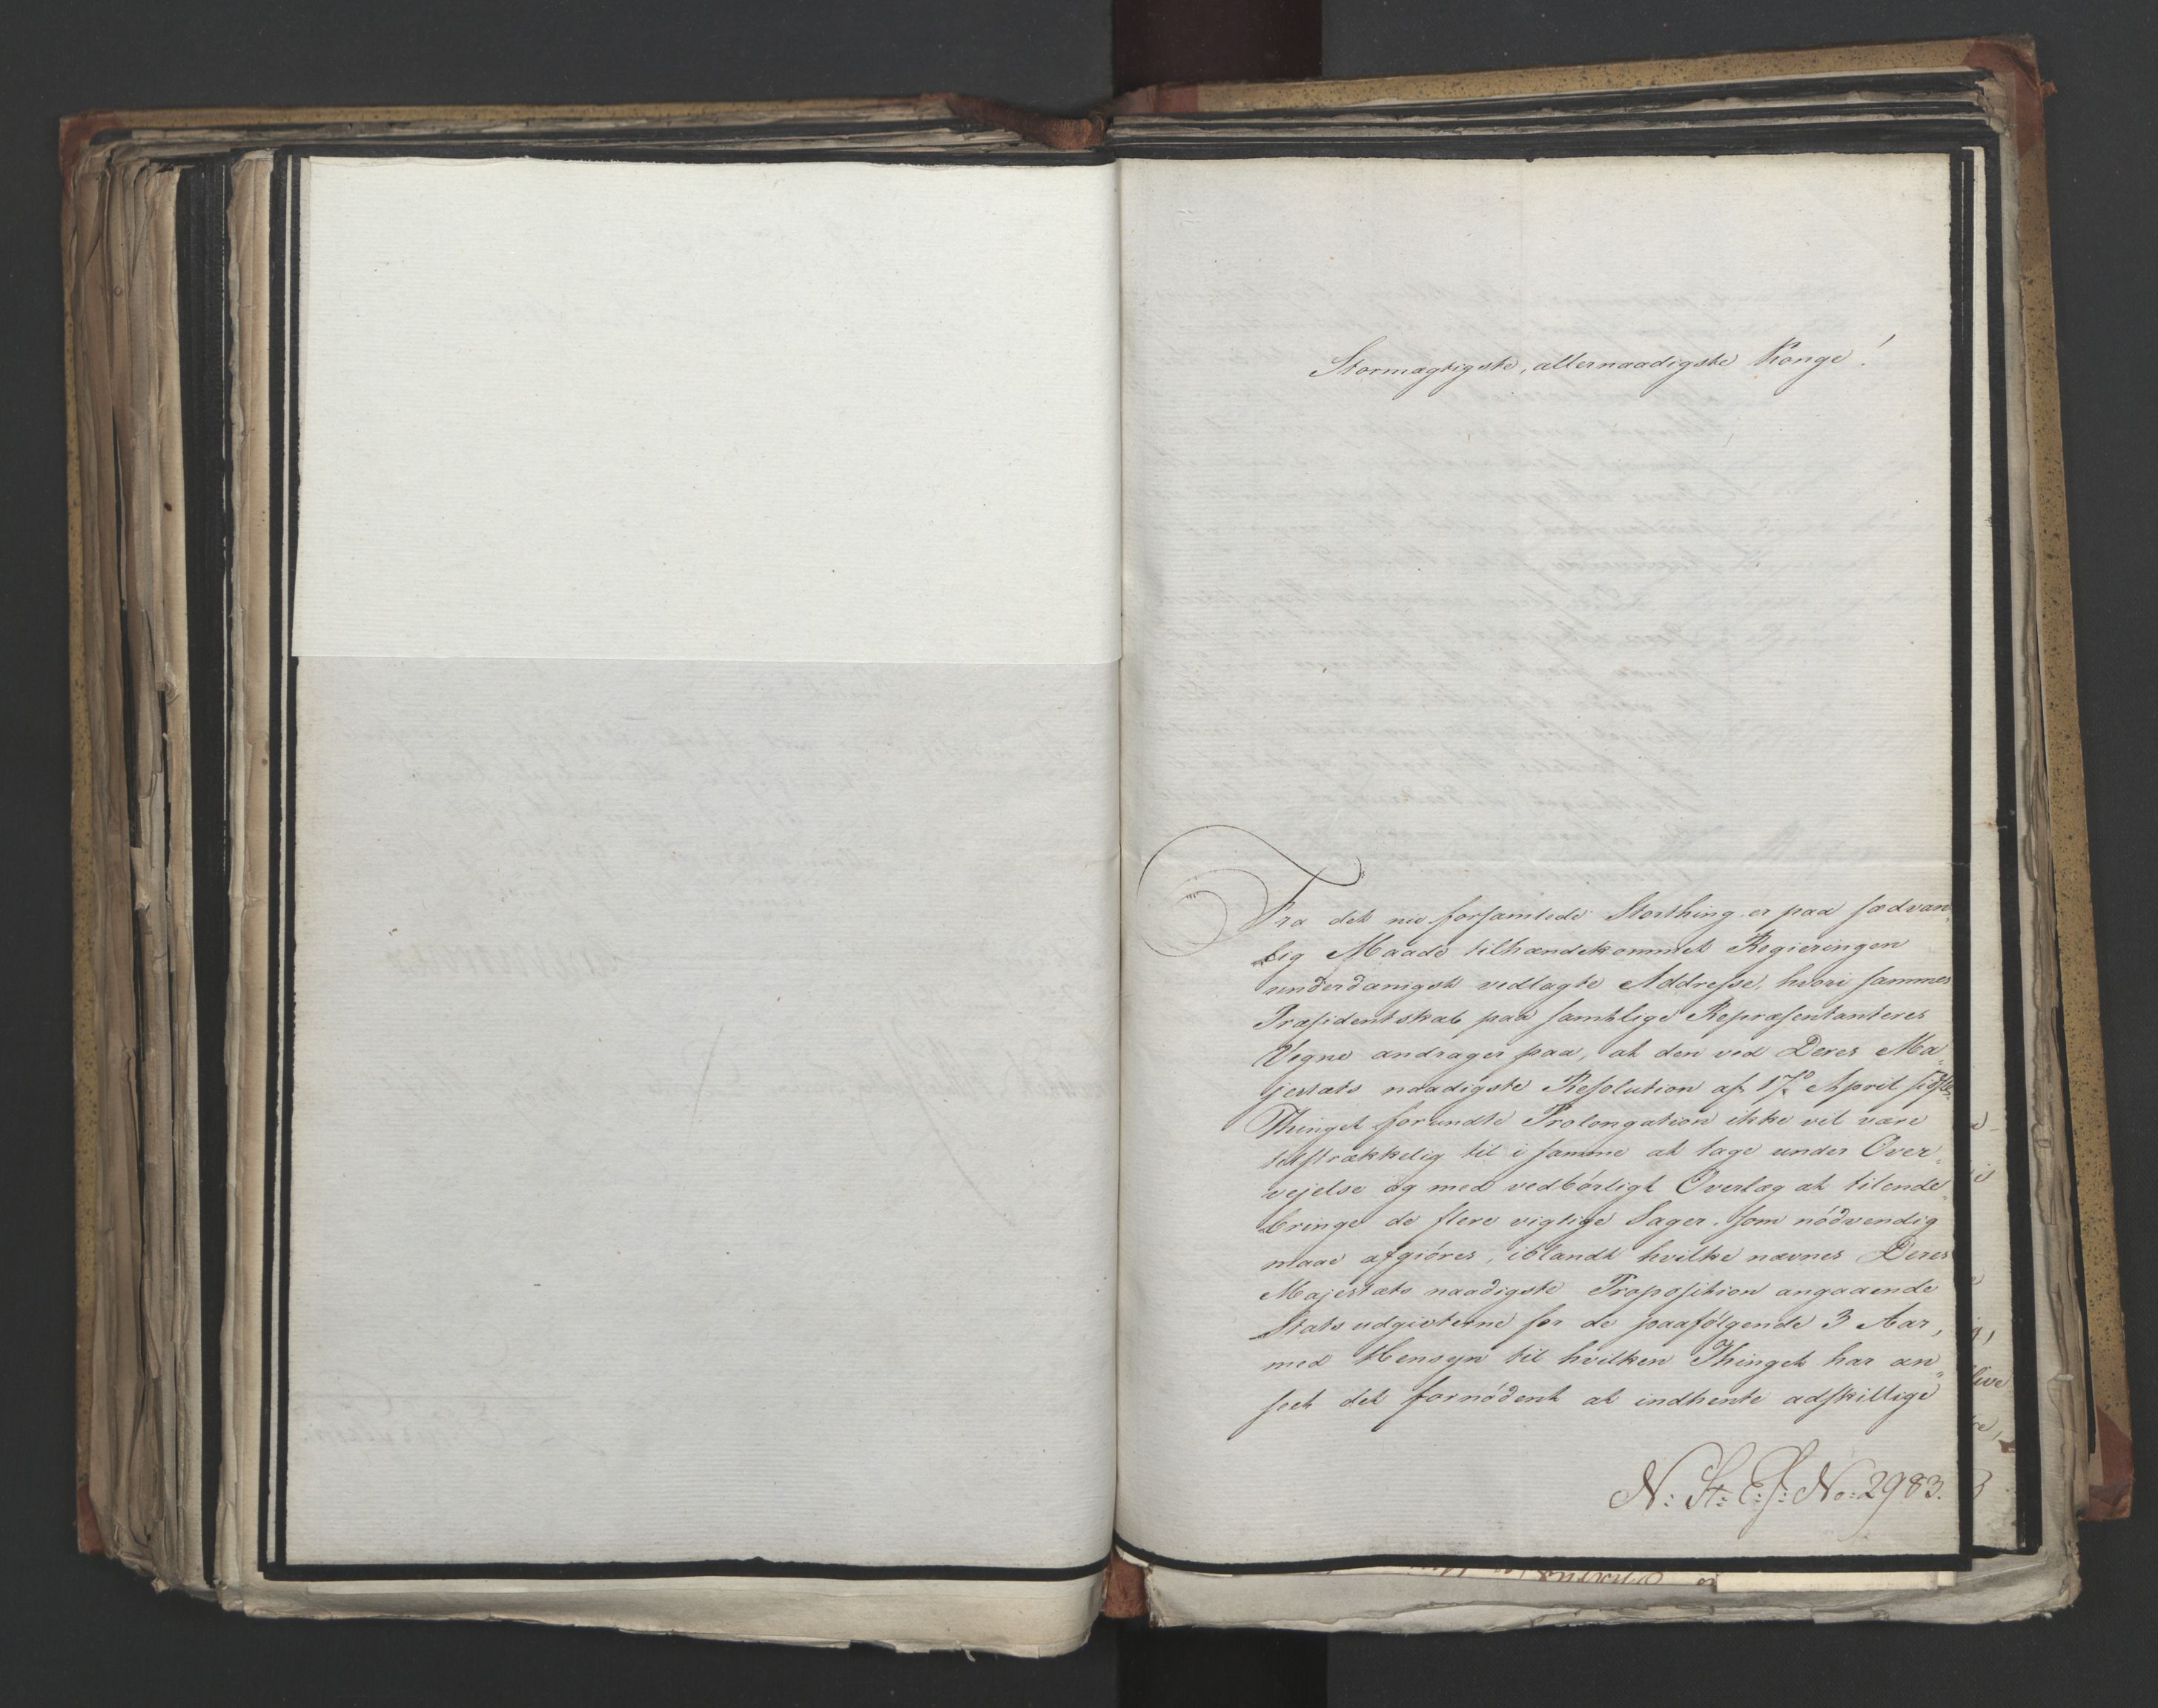 Stormægtigste, allernaadigste Konge!
Fra det nu forsamlede Storthing er paa sædvan-
lig Maade tilhændekommet Regieringen
underdanigst vedlagte Addresse, hvori sammes
Præsidentskab paa samtlige Repræsentanteres
Vegne andrager paa, at den ved Deres Ma-
jestæts naadigste Resolution af 17de April
Thinget forundte Prolongation ikke vil være
tilstrækkelig til i samme at tage under Over-
vejelse og med vedbørligt Overlæg at tilende-
bringe de flere vigtige Sager, som nødvendig
maae afgiøres, iblandt hvilke nævnes Deres
Majestæts naadigste Proposition angaaende
Statsudgivterne for de paafølgende 3 Aar,
med Hensyn til hvilken Thinget har an-
seet det fornødent at indhente adskillige
N: St: E: J: No: 2983.